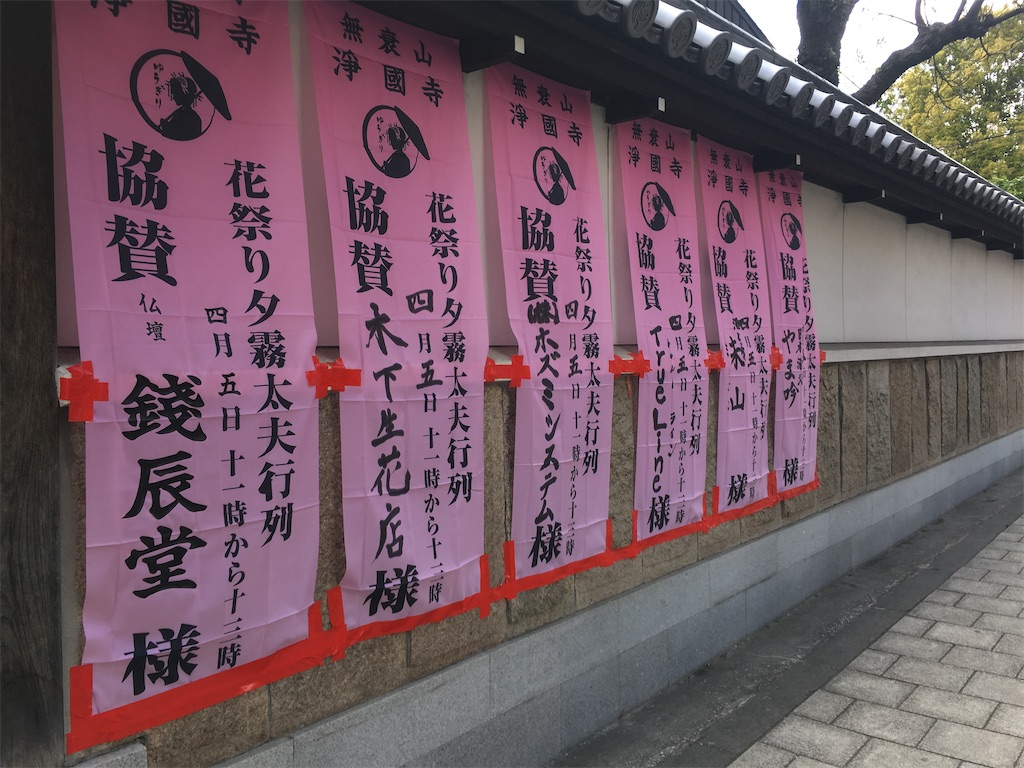 淨國寺
ゆうぎり
花祭り夕霧太夫行列
四月五日 十一時から十三時
協賛 仏壇 錢辰堂 様
無衰山
淨國寺
ゆうぎり
花祭り夕霧太夫行列
四月五日 十一時から十三時
協賛 木下生花店 様
無衰山
淨國寺
ゆうぎり
花祭り夕霧太夫行列
四月五日 十一時から十三時
協賛 ㈱ホズミシステム 様
無衰山
淨國寺
花祭り夕霧太夫行列
四月五日 十一時から十三時
協賛 TrueLine 様
無衰山
淨國寺
花祭り夕霧太夫行列
協賛 山 様
無衰山
淨國寺
花祭り夕霧太夫行列
協賛 やま吟 様